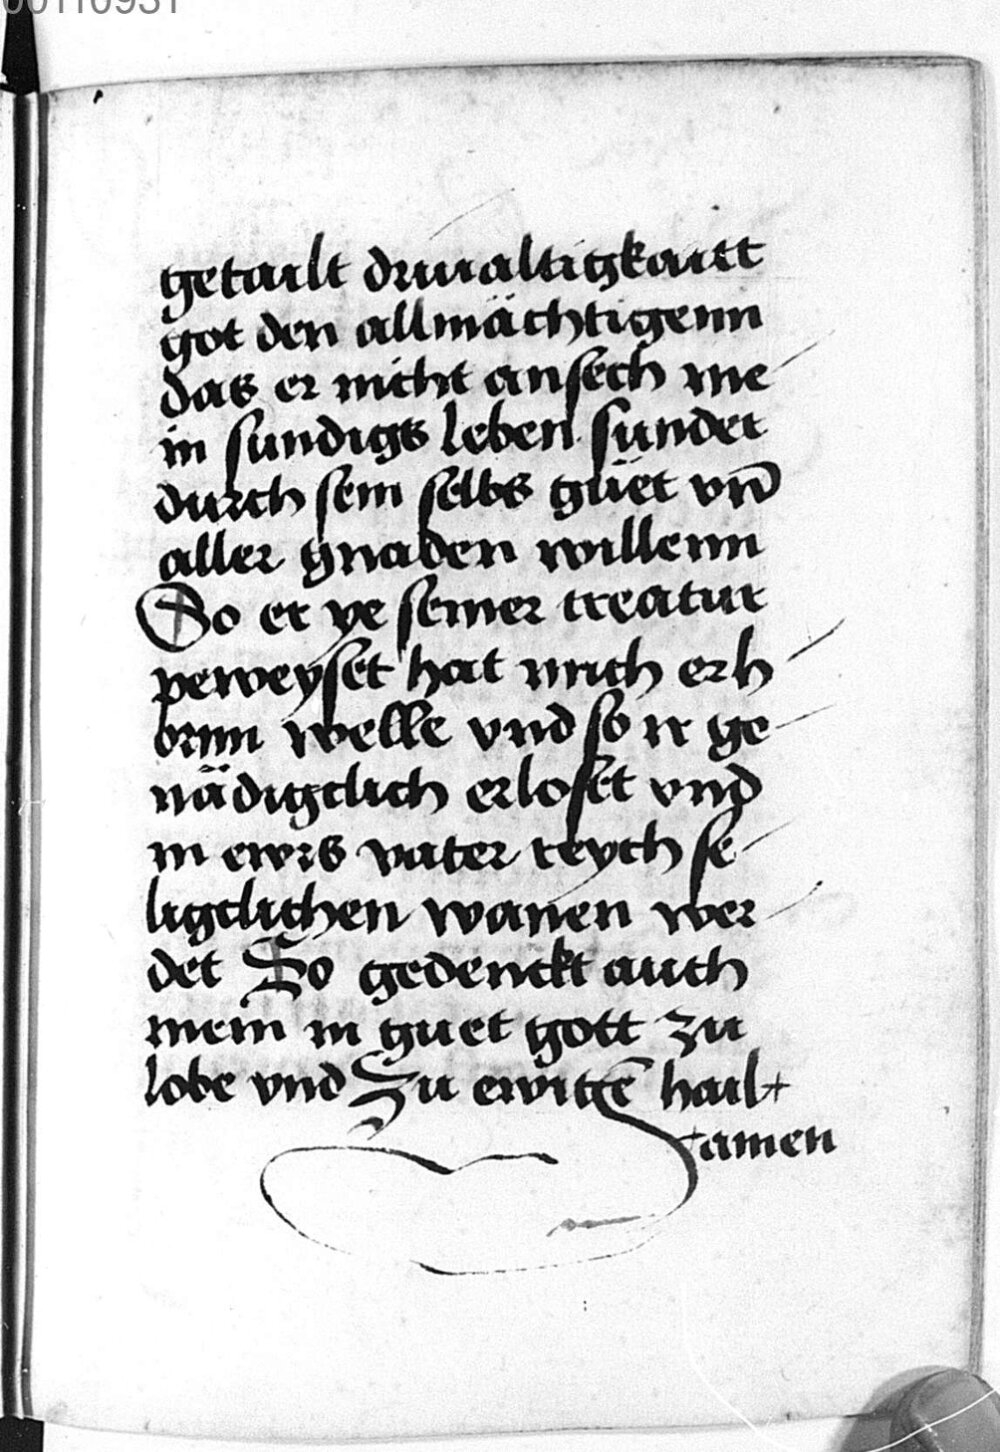 00110931
getailt driualtigkaitt
got den allmächtigenn
das er nicht ansech me-
in sundigs leben sunder
durch sein selbs güet vnd̄
aller gnaden willenn
So er ye seiner creatur
peweyset hat mich erh-
ornn welle vnd so ir ge-
nädigclich erlost vnd
in ewrs vater reych se-
ligclichen wanen wer-
det So gedenckt auch
mein in guet gott zu
lobe vnd Zu ewigē hail+
+amen